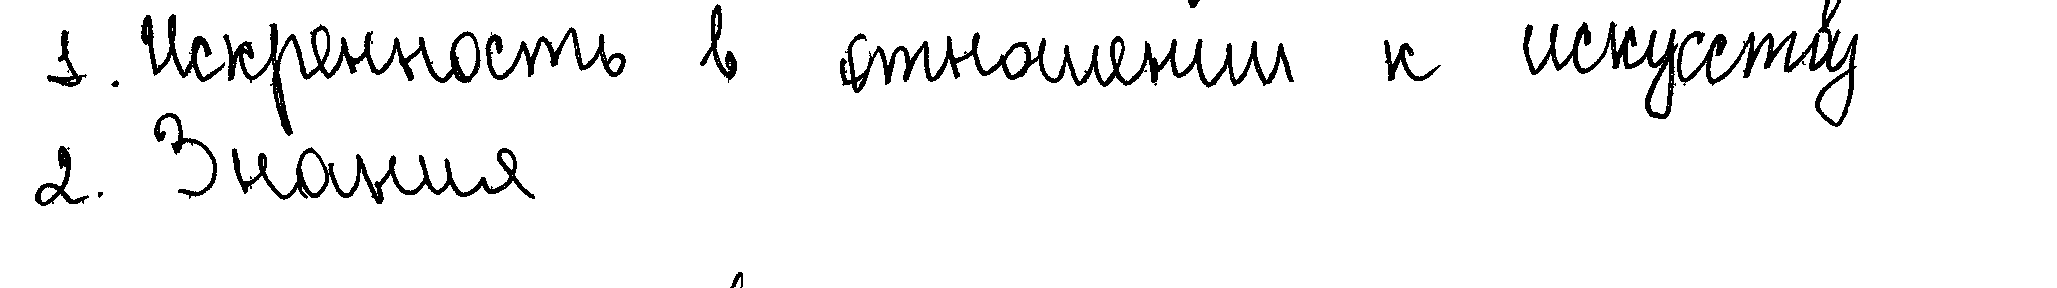 1. Искренность в отношении к искусству
2. Знания